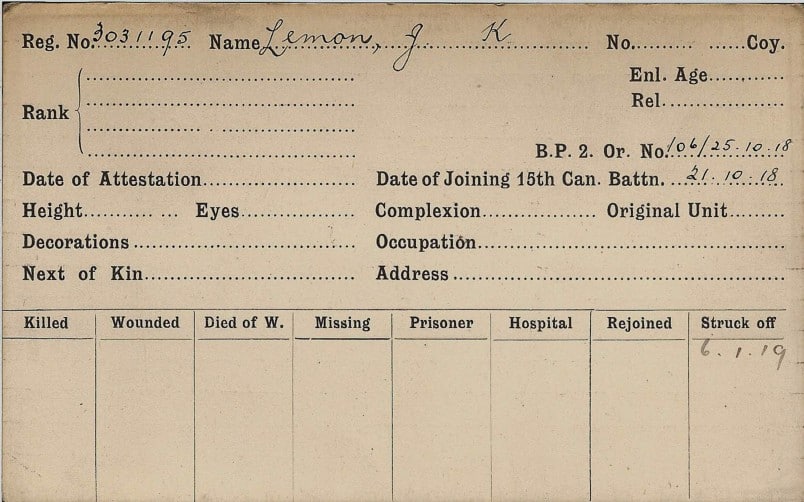 Reg. No. 3031195 Name Lemon, J K No. Coy.
Enl. Age
Rel.
Rank
B.P. 2. Or. No. 106/25.10.18
Date of Attestation Date of Joining 15th Can. Battn. 21.10.18
Height Eyes Complexion Original Unit
Decorations Occupation
Next of Kin Address
Killed Wounded Died of W. Missing Prisoner Hospital Rejoined Struck off
6.1.19